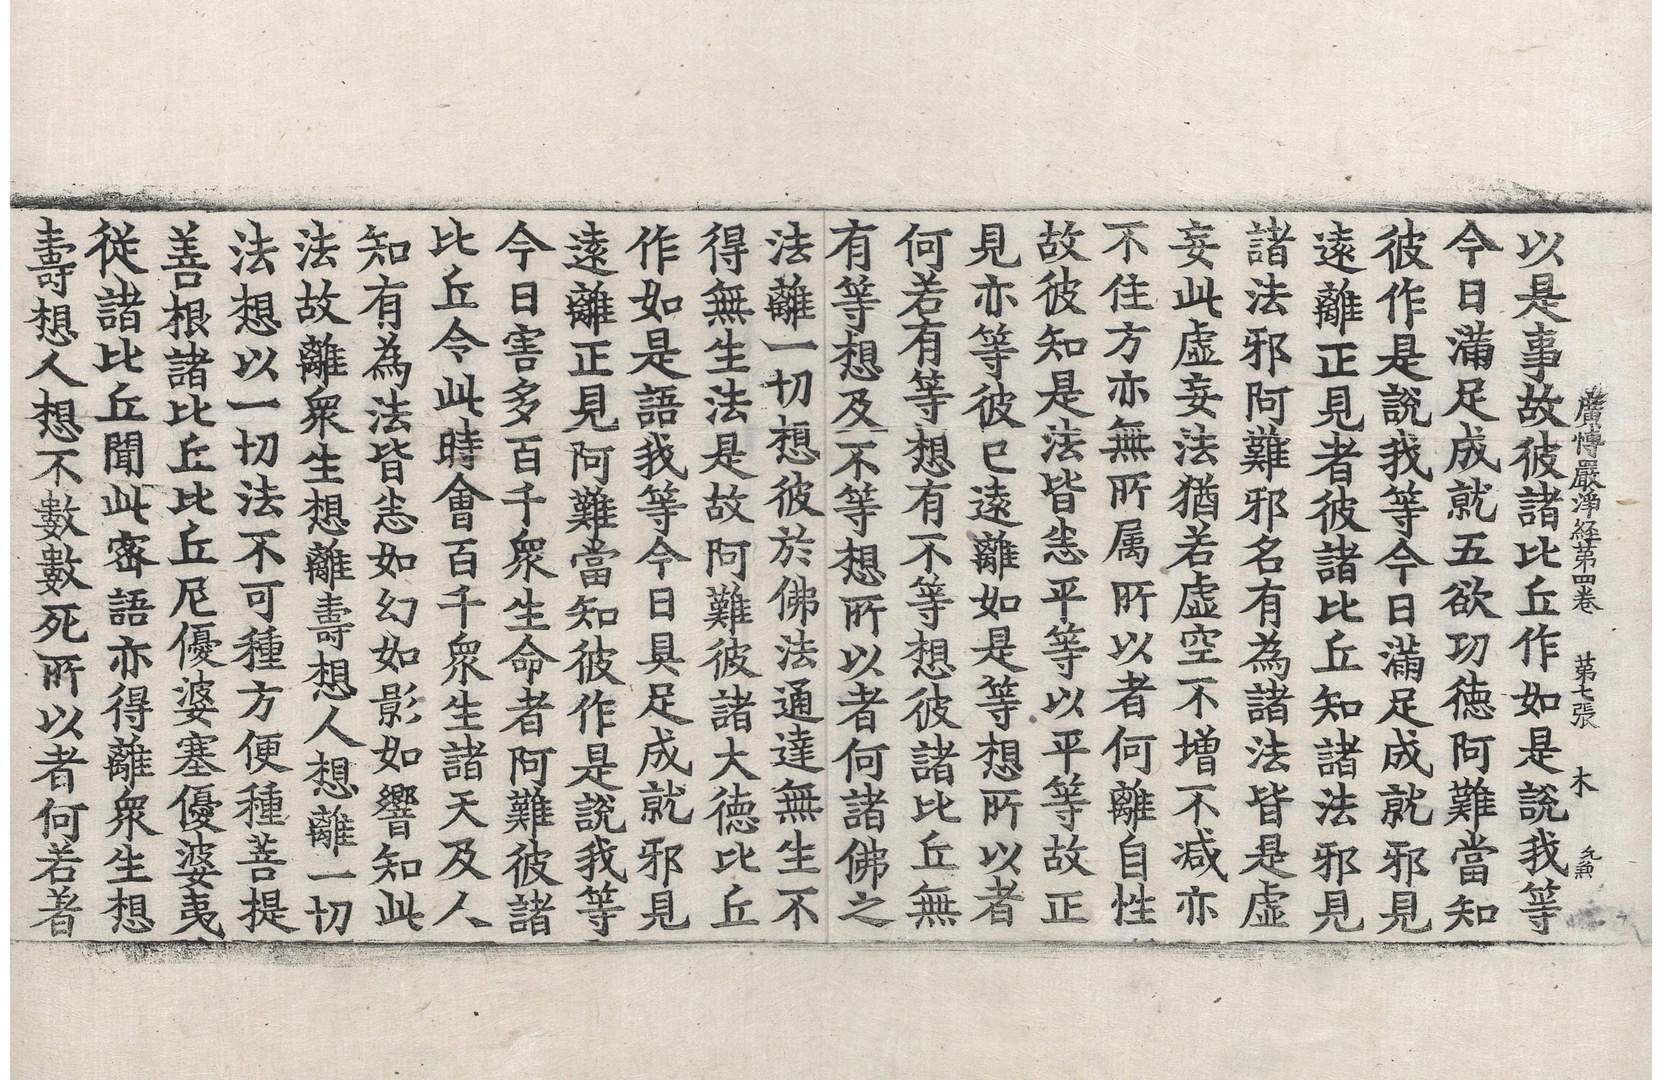 廣愽嚴淨経第四卷 第七張 木
以是事故彼諸比丘作如是說我等
今日滿足成就五欲功德阿難當知
彼作是說我等今日滿足成就邪見
遠離正見者彼諸比丘知諸法邪見
諸法邪阿難邪名有為諸法皆是虛
妄此虛妄妄法猶若虛空不增不减亦
不住方亦無所属所以者何離自性
故彼知是法皆悉平等以平等故正
見亦等彼已遠離如是等想所以者
何若有等想有不等想彼諸比丘無
有等想及不等想所以者何諸佛之
法離一切想彼於佛法通達無生不
得無生法是故阿難彼諸大德比丘
作如是語我等今日具足成就邪見
遠離正見阿難當知彼作是說我等
今日害多百千衆生命者阿難彼諸
比丘令此時會百千衆生諸天及人
知有為法皆悉如幻如影如響知此
法故離衆生想離壽想人想離一切
法想以一切法不可種方便種菩提
善根諸比丘比丘尼優婆塞優婆夷
從諸比丘聞此密語亦得離衆生想
壽想人想不數數死所以者何若著